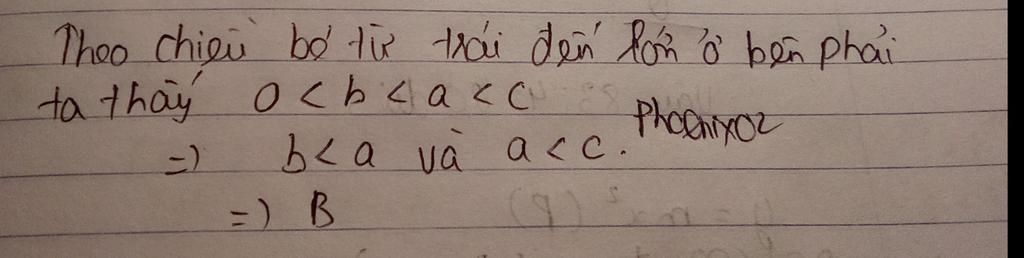 Theo chiều bé từ trái đến lớn ở bên phải
ta thấy 0 < b < a < c
Phoenix02
=) b < a và a < c.
=) B
y = mx² (P)